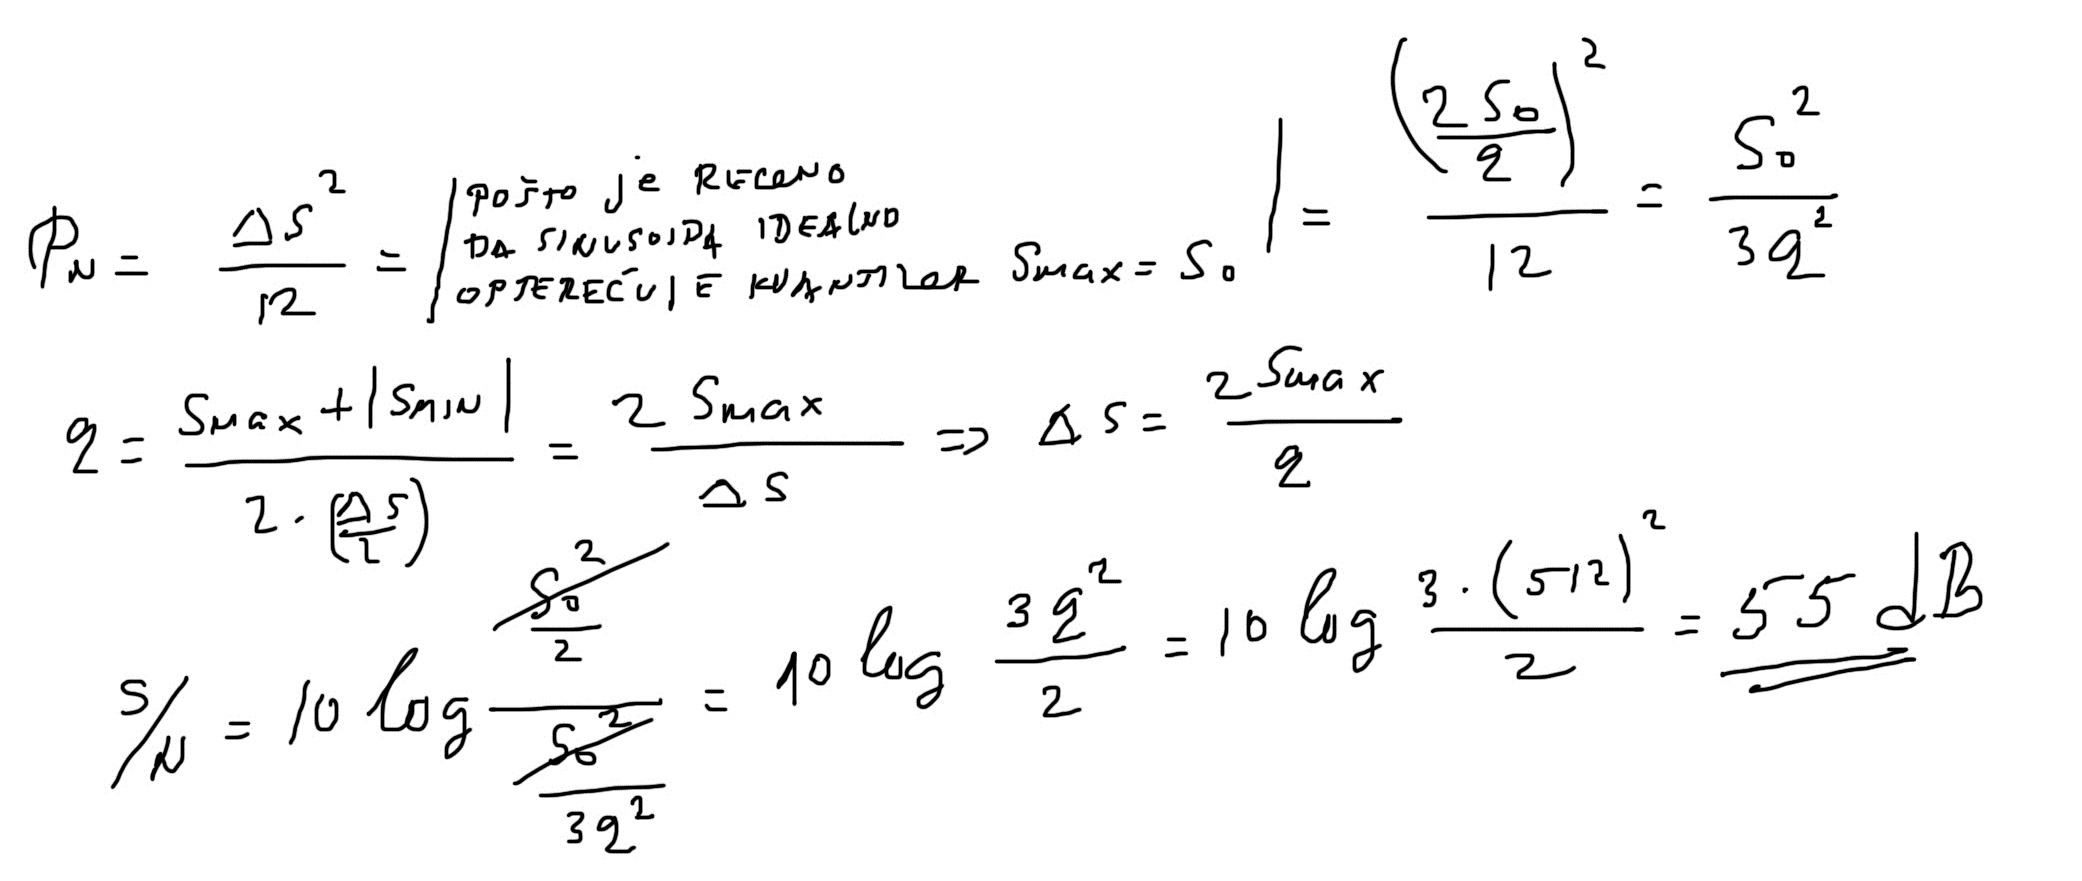 P_N = ΔS² / 12 = | POŠTO JE REČENO DA SINUSOIDA IDEALNO OPTEREĆUJE KVANTIZER Smax = S₀ | = (2S₀ / q)² / 12 = S₀² / 3q²
q = (Smax + |SMIN|) / (2 · (ΔS / 2)) = 2 Smax / ΔS => ΔS = 2 Smax / q
S/N = 10 log (S₀² / 2) / (S₀² / 3q²) = 10 log 3q² / 2 = 10 log 3 · (512)² / 2 = 55 dB